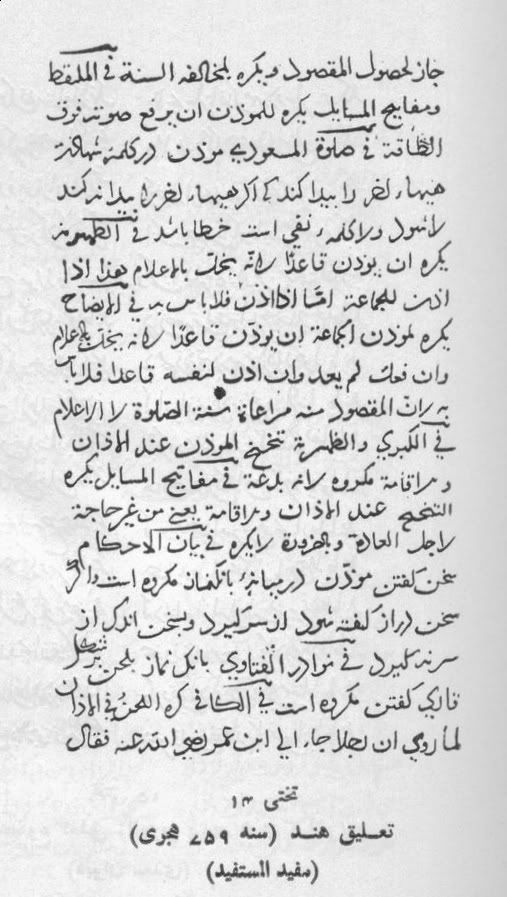 جاز لحصول المقصود ويكره لمخالفه السنة في الملتقط
ومفاتيح المسايل يكره للموذن ان يرفع صوته فوق
الطاقة في صلوة المسعودي موذن در كلمهٔ شهادت
هيهاء لغر را پيدا كند كه اكر هيهاء لغر را پيدا نه كند
لا شود ولا كلمهٔ نفي است خطا باشد في الظهيرية
يكره ان يوذن قاعدًا لانه يخل بالاعلام هذا اذا
اذن للجماعة امّا اذا اذن فلا باس به في الايضاح
يكره لموذن الجماعة ان يوذن قاعدًا لانه يخل بالاعلام
وان فعل لم يعد وان اذن لنفسه قاعدا فلا باس
به لان المقصود منه مراعاة سنة الصلوة لا الاعلام
في الكبري والظهيرية تنحنح الموذن عند الاذان
والاقامة مكروه لانه بدعة في مفاتيح المسايل يكره
التنحنح عند الاذان والاقامة يعني من غير حاجة
لاجل العادة وبالضرورة لا يكره في بيان الاحكام
سخن كفتن موذن در ميانهٔ بانكنماز مكروه است واكر
سخن دراز كفته شود از سر كيرد وبسخن اندك از
سر نه كيرد في نوادر الفتاوي بانك نماز بلحن
قاري كفتن مكروه است في الكافي كره اللحن في الاذان
لما روي ان رجلا جاء الي ابن عمر رضي الله عنه فقال
تختی ۱۳
تعلیق هند (سنه ۷۵۹ هجری)
(مفید المستفید)